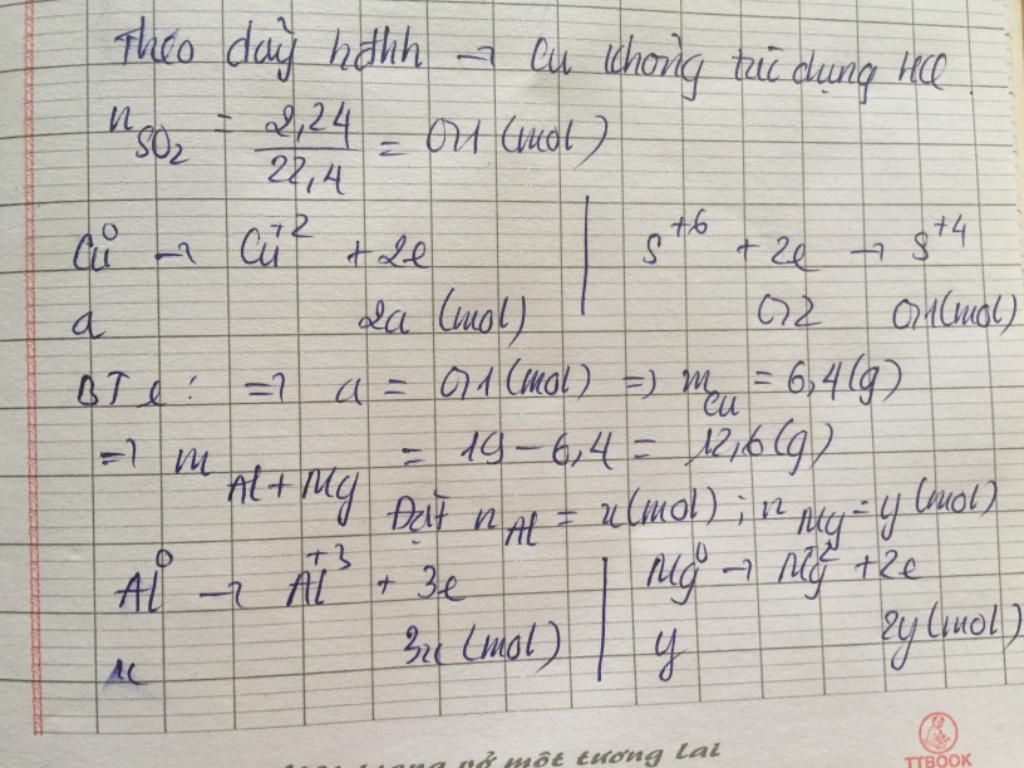 Theo dãy hđhh → Cu không tác dụng HCl
nSO2 = 2,24/22,4 = 0,1 (mol)
Cu⁰ → Cu⁺² + 2e | S⁺⁶ + 2e → S⁺⁴
a 2a (mol) 0,2 0,1 (mol)
BT e: => a = 0,1 (mol) => mCu = 6,4 (g)
=> mAl+Mg = 19 - 6,4 = 12,6 (g)
Đặt nAl = x (mol) ; nMg = y (mol)
Al⁰ → Al⁺³ + 3e | Mg⁰ → Mg⁺² + 2e
x 3x (mol) | y 2y (mol)
vở một tương lai
TTBOOK